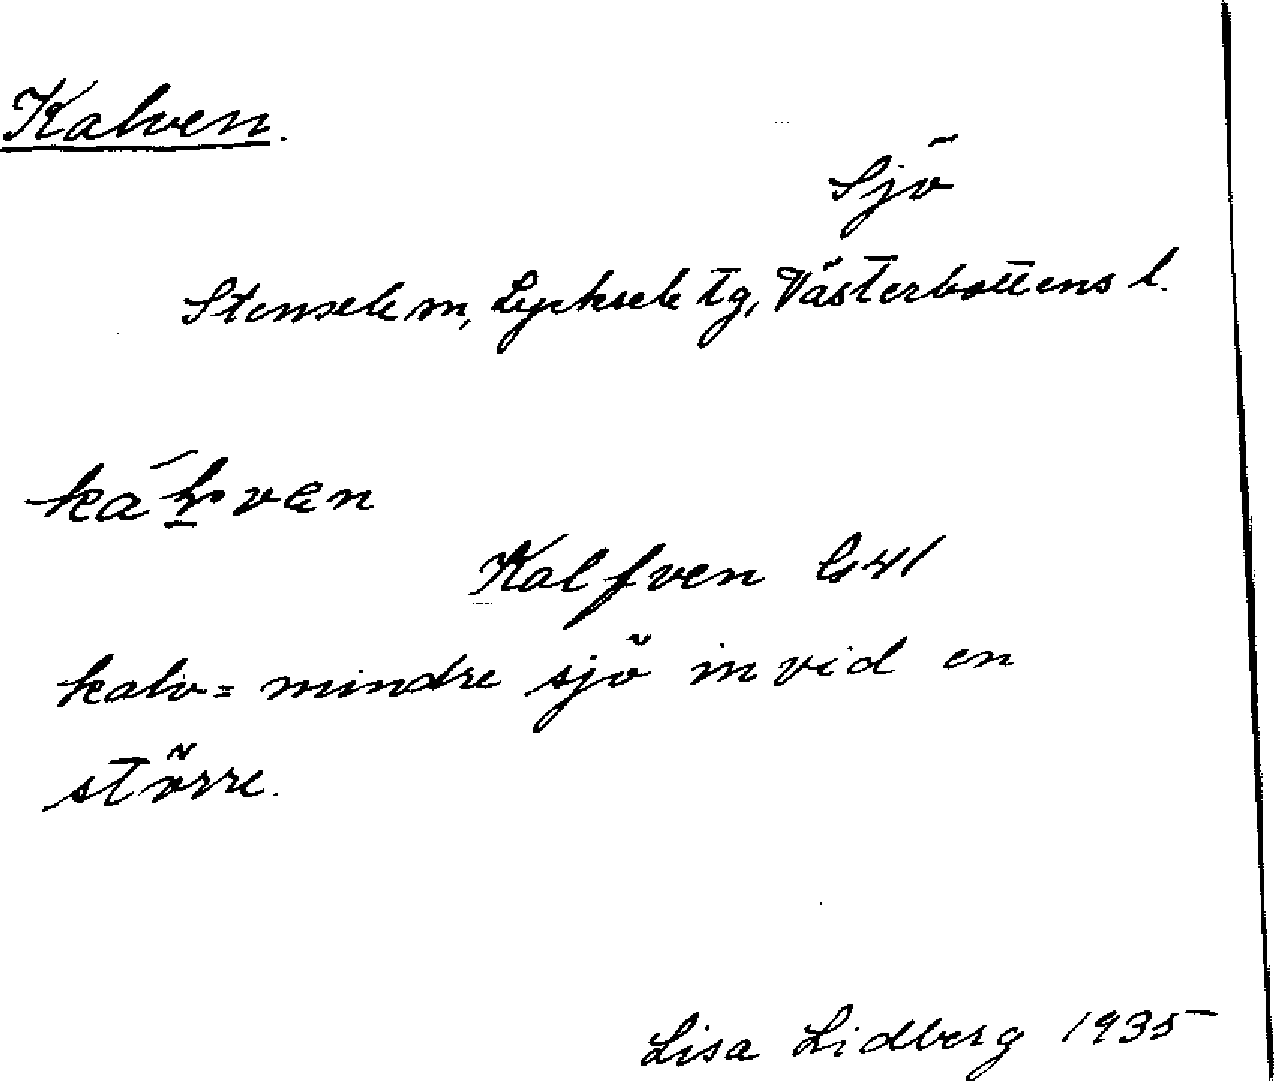 Kalven.
Sjö
Stensele sn, Lycksele tg, Västerbottens l.
Kalfven G41
kalv = mindre sjö invid en
större.
Lisa Lidberg 1935